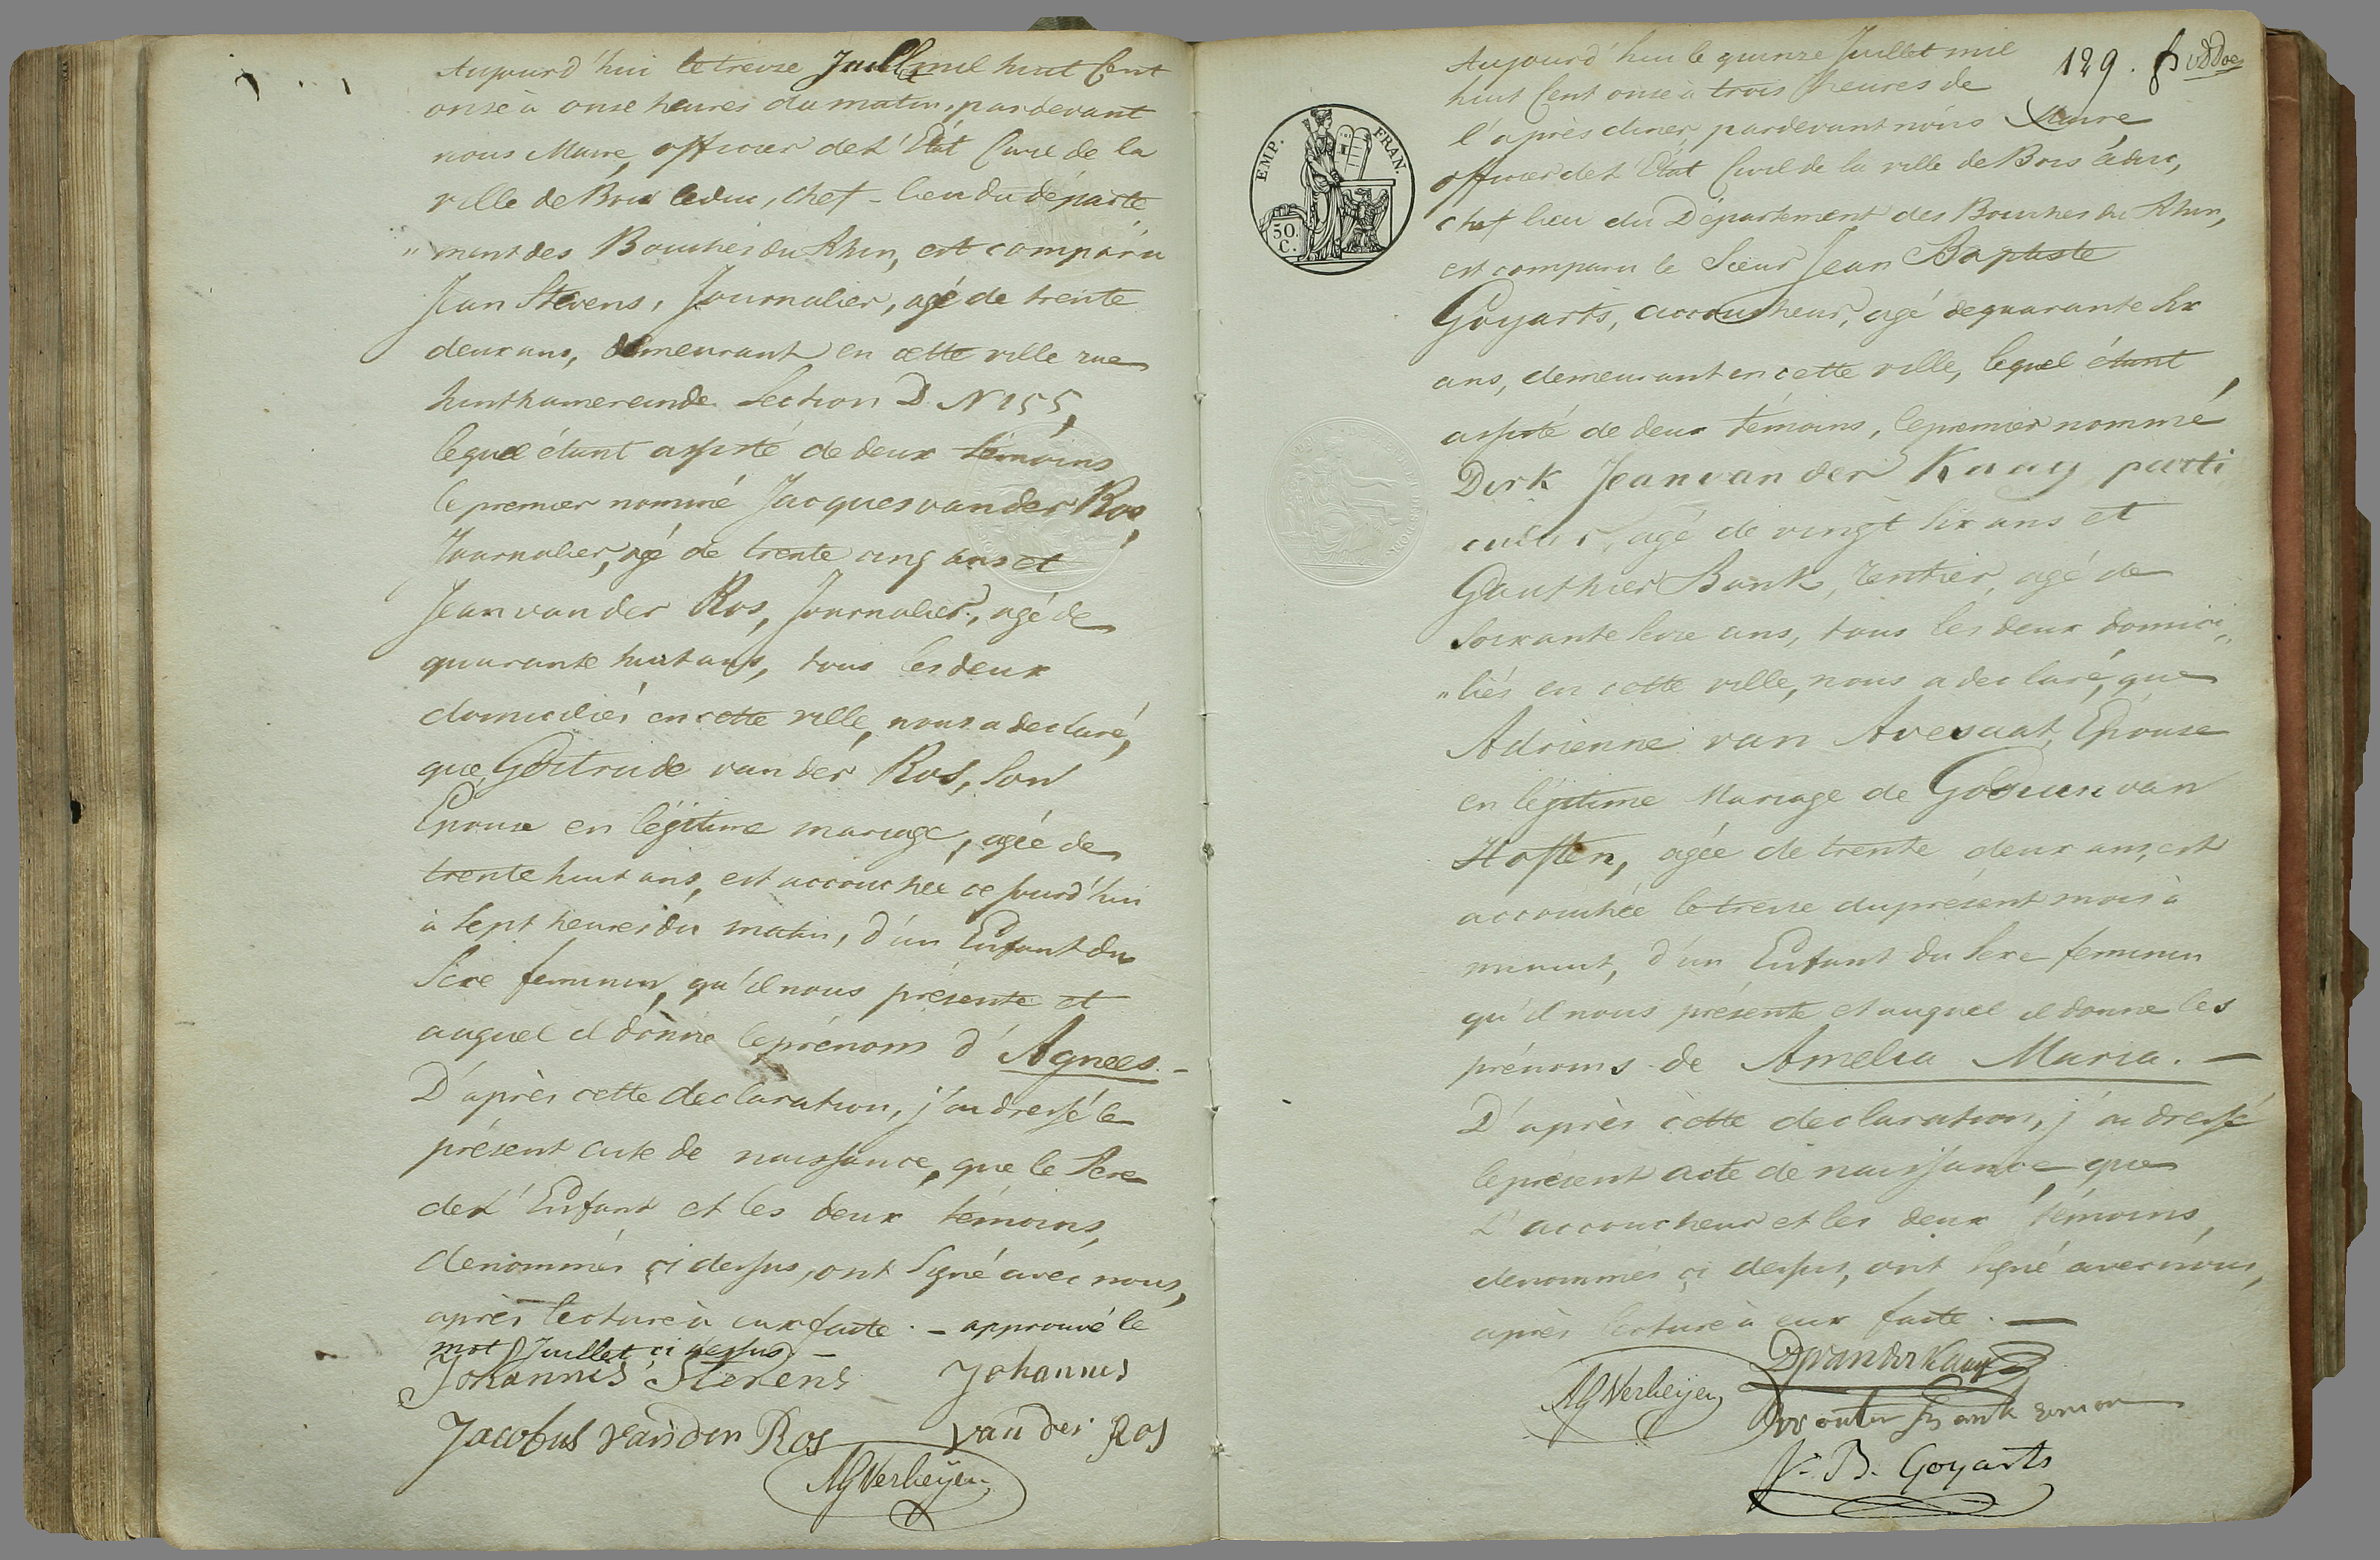 Aujourd'hui le treize Juillet mil huit Cent
onze à onze heures du matin, pardevant
nous Maire, officier de L'Etat Civil de la
ville de Bois leduc, chef-lieu du départe
"ment des Bouches du Rhin, est comparu
Jean Stevens, Journalier, agé de trente
deux ans, demeurant en cette ville rue
hinthamereinde Section D. N 155,
lequel étant assisté de deux témoins
le premier nommé Jacques van der Ros,
Journalier, agé de trente cinq ans et
Jean van der Ros, Journalier, agé de
quarante huit ans, tous les deux
domiciliés en cette ville, nous a declaré,
que Gertrude van der Ros, Son
Epouse en légitime mariage, agée de
trente huit ans, est accouchée ce jourd'hui
à Sept heures du matin, d'un Enfant du
Sexe feminin, qu'il nous présente et
auquel il donne le prénom d'Agnees. -
D'après cette declaration, j'ai dressé le
présent acte de naissance, que le Pere
de L'Enfant et les deux témoins,
denommés ci dessus, ont Signé avec nous,
après lecture à eux faite. - approuvé le
mot Juillet ci dessus -
Johannis Stevens Johannis
Jacobus van den Ros van der Ros
AGVerheijen
129.
Aujourd'hui le quinze Juillet mil
huit Cent onze à trois heures de
l'après diner, pardevant nous Maire
officier de L'Etat Civil de la ville de Bois leduc,
chef lieu du Département des Bouches du Rhin,
est comparu le Sieur Jean Baptiste
Goyarts, accoucheur, agé de quarante Six
ans, demeurant en cette ville, lequel étant
assisté de deux témoins, le premier nommé
Dirk Jean van der Kaay parti
culier, agé de vingt Six ans et
Gauthier Bank, rentier, agé de
Soixante Seize ans, tous les deux domici"
"liés en cette ville, nous a declaré, que
Adrienne van Avesaat, Epouse
en légitime Mariage de Goduin van
Hoften, agée de trente deux ans, est
accouchée le treize du présent mois à
minuit, d'un Enfant du Sexe feminin
qu'il nous présente et auquel il donne les
prénoms de Amelia Maria. -
D'après cette declaration, j'ai dressé
le présent acte de naissance, que
L'accoucheur et les deux témoins,
denommés ci dessus, ont signé avec nous,
après lecture à eux faite. -
AGVerheijen DJvanderKaay
Wouter Bank
J. B. Goyarts
EMP. FRAN.
50.
C.